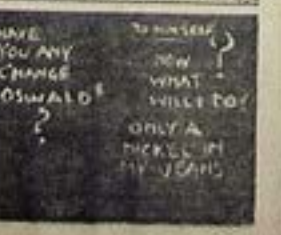 HAVE
YOU ANY
CHANGE
OSWALD
?
TO HIMSELF
?
NOW
WHAT
WILL I DO?
ONLY A
NICKEL IN
MY JEANS